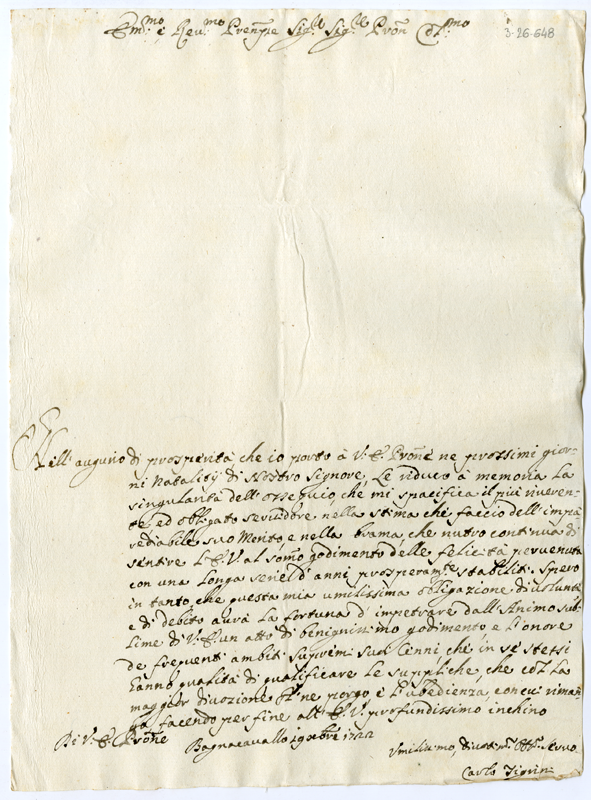 Em.mo e Reu.mo Prenpe Sig.r Sig.r Pron Col.mo
3-26-648
Nell' augurio di prosperità che io porto à V. E. Prone ne prossimi gior-
ni Natalitij di Nostro Signore, Le riduco à memoria La
singularità dell' ossequio, che mi spacifica il più riueren-
te ed obligato seruidore nella stima che faccio dell'
suo Merito, e nella brama, che nutro continua di
sentire L' E. V. al somo godimento delle felicità peruenuta
con una Longa d' anni prosperam.te stabiliti. Spero
in tanto che questa mia umilissima obligazione di uoluntà
e di debito aurà La fortuna d' impetrare dall' Animo sub-
Lime di V. E. un atto di benignissimo godimento e L' onore
de frequenti ambiti supremi suoi Cenni che in se stessi
hanno qualità di qualificare Le suppliche, che col La
maggior diuozione Gl' ne porgo e L' ubedienza, con cui riman-
go facendo per fine all' E. V. profundissimo inchino
Di V. E. Prone
Bagnacauallo 19 xbre 1722
Umilissimo, diuotis.mo Obl.mo Seruo
Carlo Tigrini